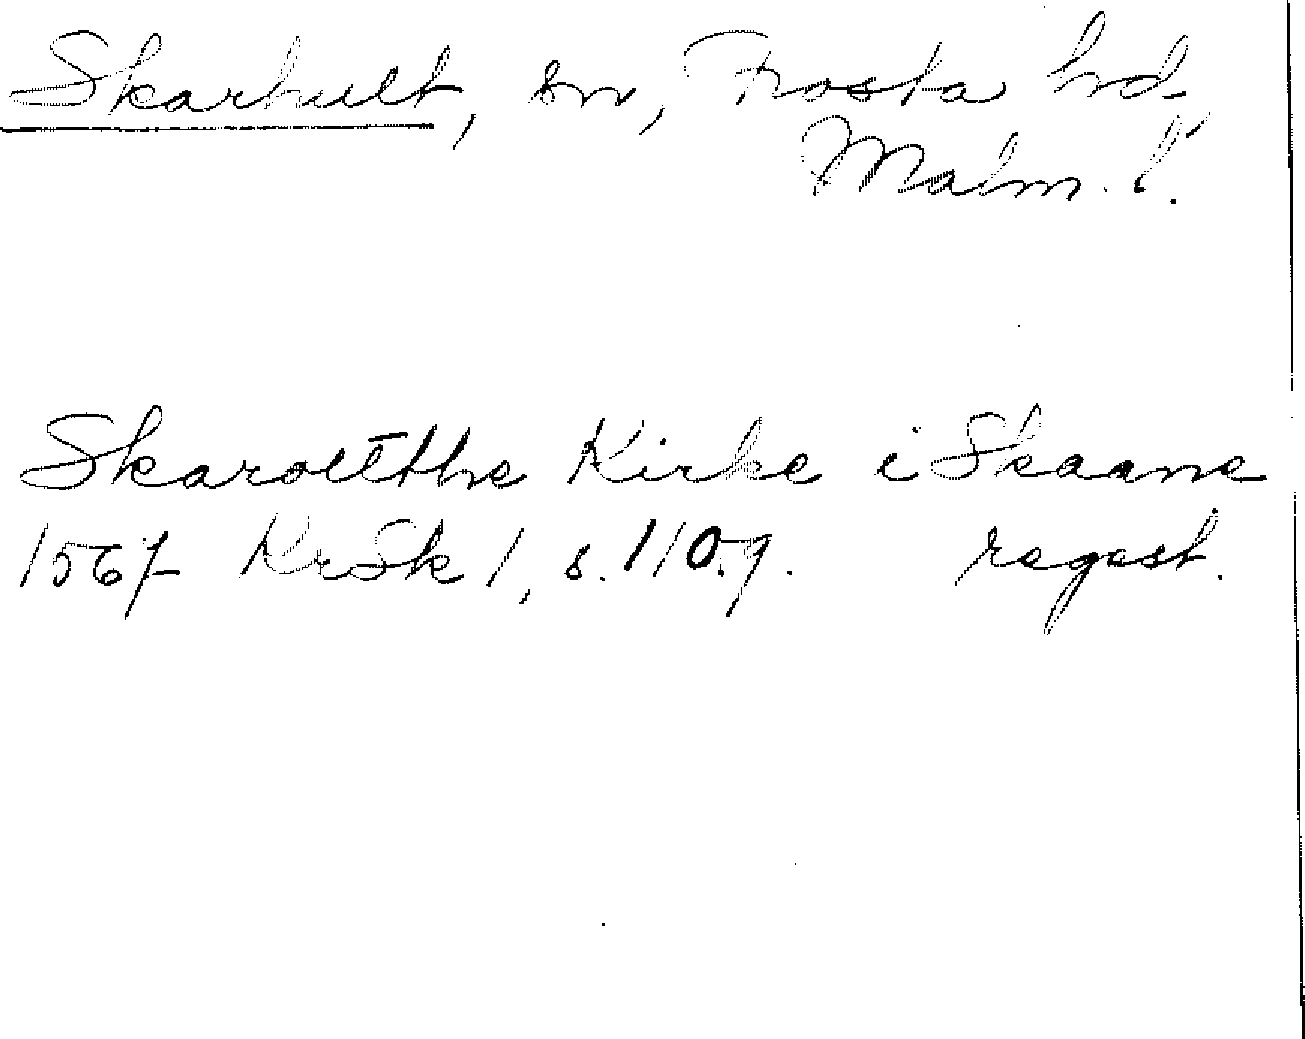 Skarhult, sn, Frosta hd.
Malm. l.
Skaroltthe Kirke i Skaane
1567 KrSk 1, s. 110.9. regest.